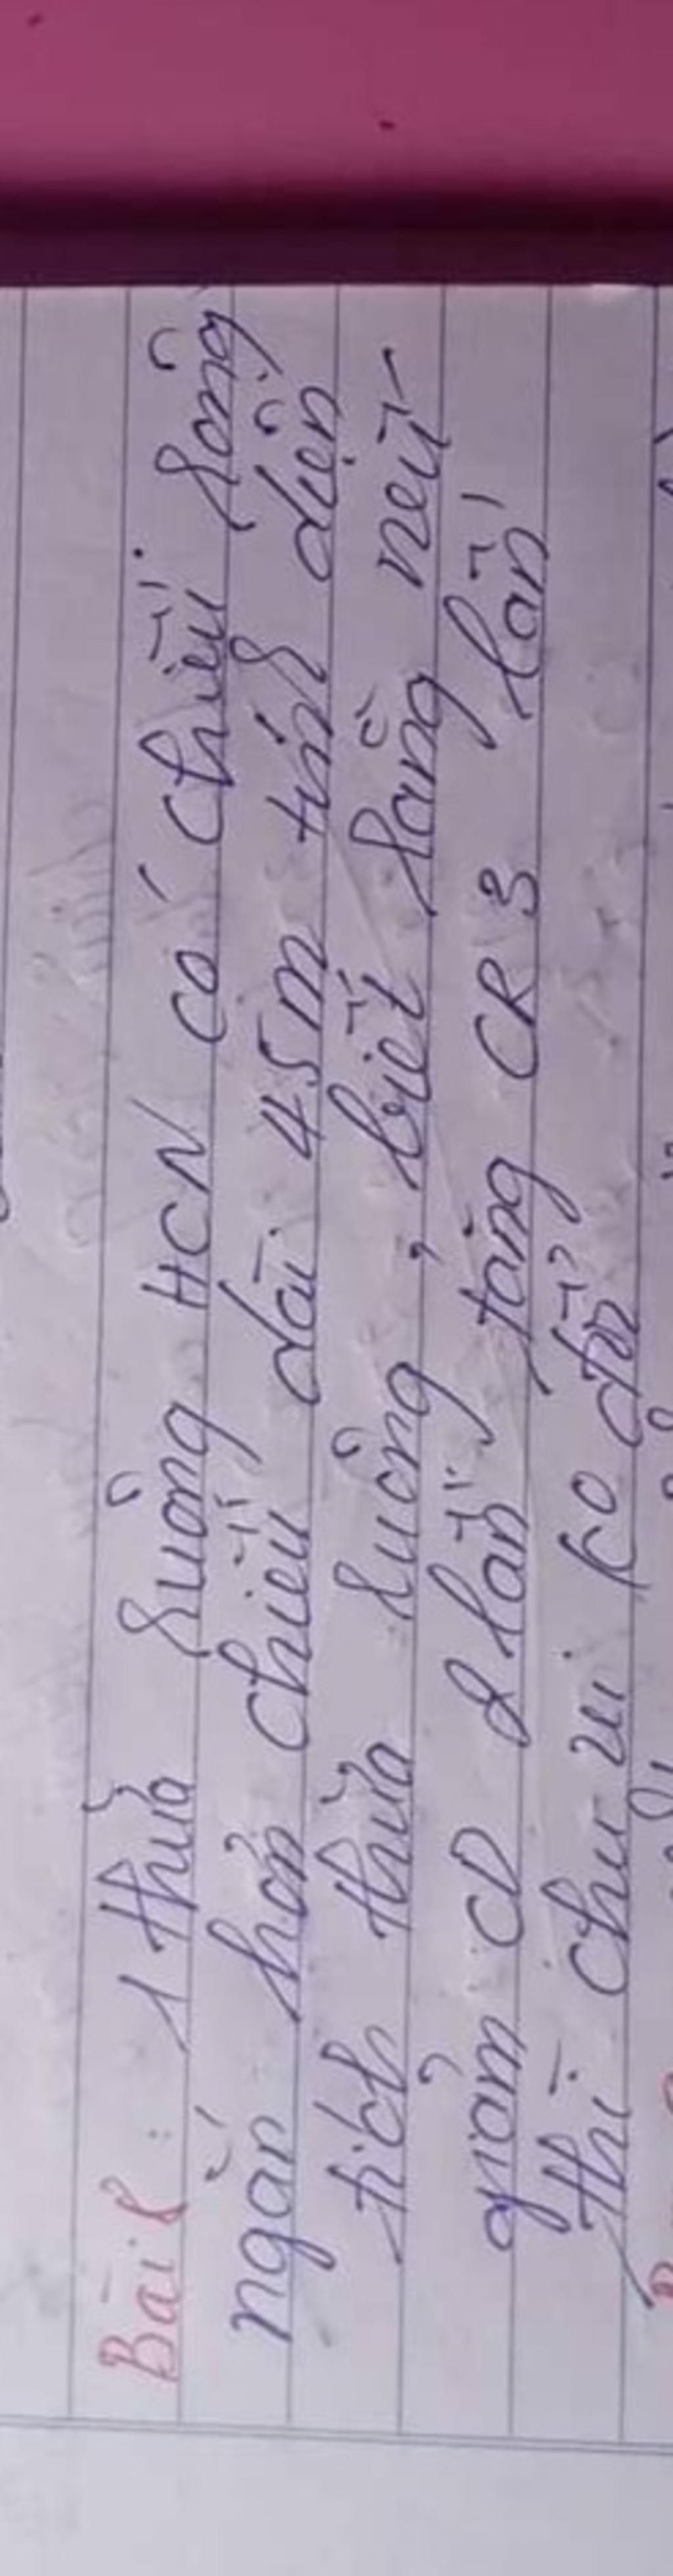 Bài 2: 1 thửa ruộng HCN có chiều rộng
ngắn hơn chiều dài 45m tính diện
tích thửa ruộng, biết rằng nếu
giảm CD 2 lần, tăng CR 3 lần
thì chu vi ko đổi